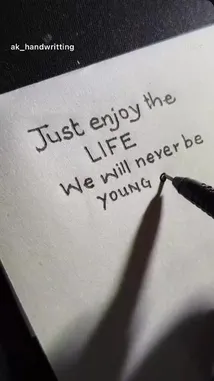 ak_handwritting
Just enjoy the
LIFE
We will never be
YOUNG